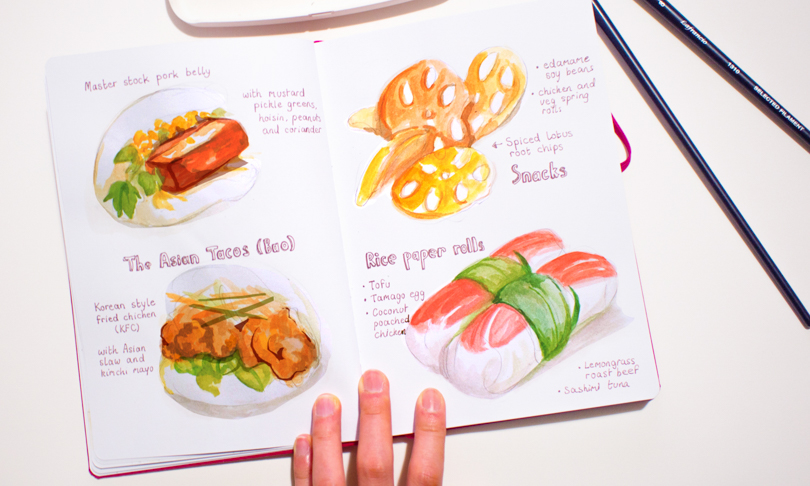 Master stock pork belly
with mustard
pickle greens,
hoisin, peanuts
and coriander
The Asian Tacos (Bao)
Korean style
fried chicken
(KFC)
with Asian
slaw and
kimchi mayo
• edamame
soy beans
• chicken and
veg spring
rolls
Spiced lobus
root chips
Snacks
Rice paper rolls
• Tofu
• Tamago egg
• Coconut
poached
chicken
• Lemongrass
roast beef
• Sashimi tuna
1310
SELECTED FILAMENT